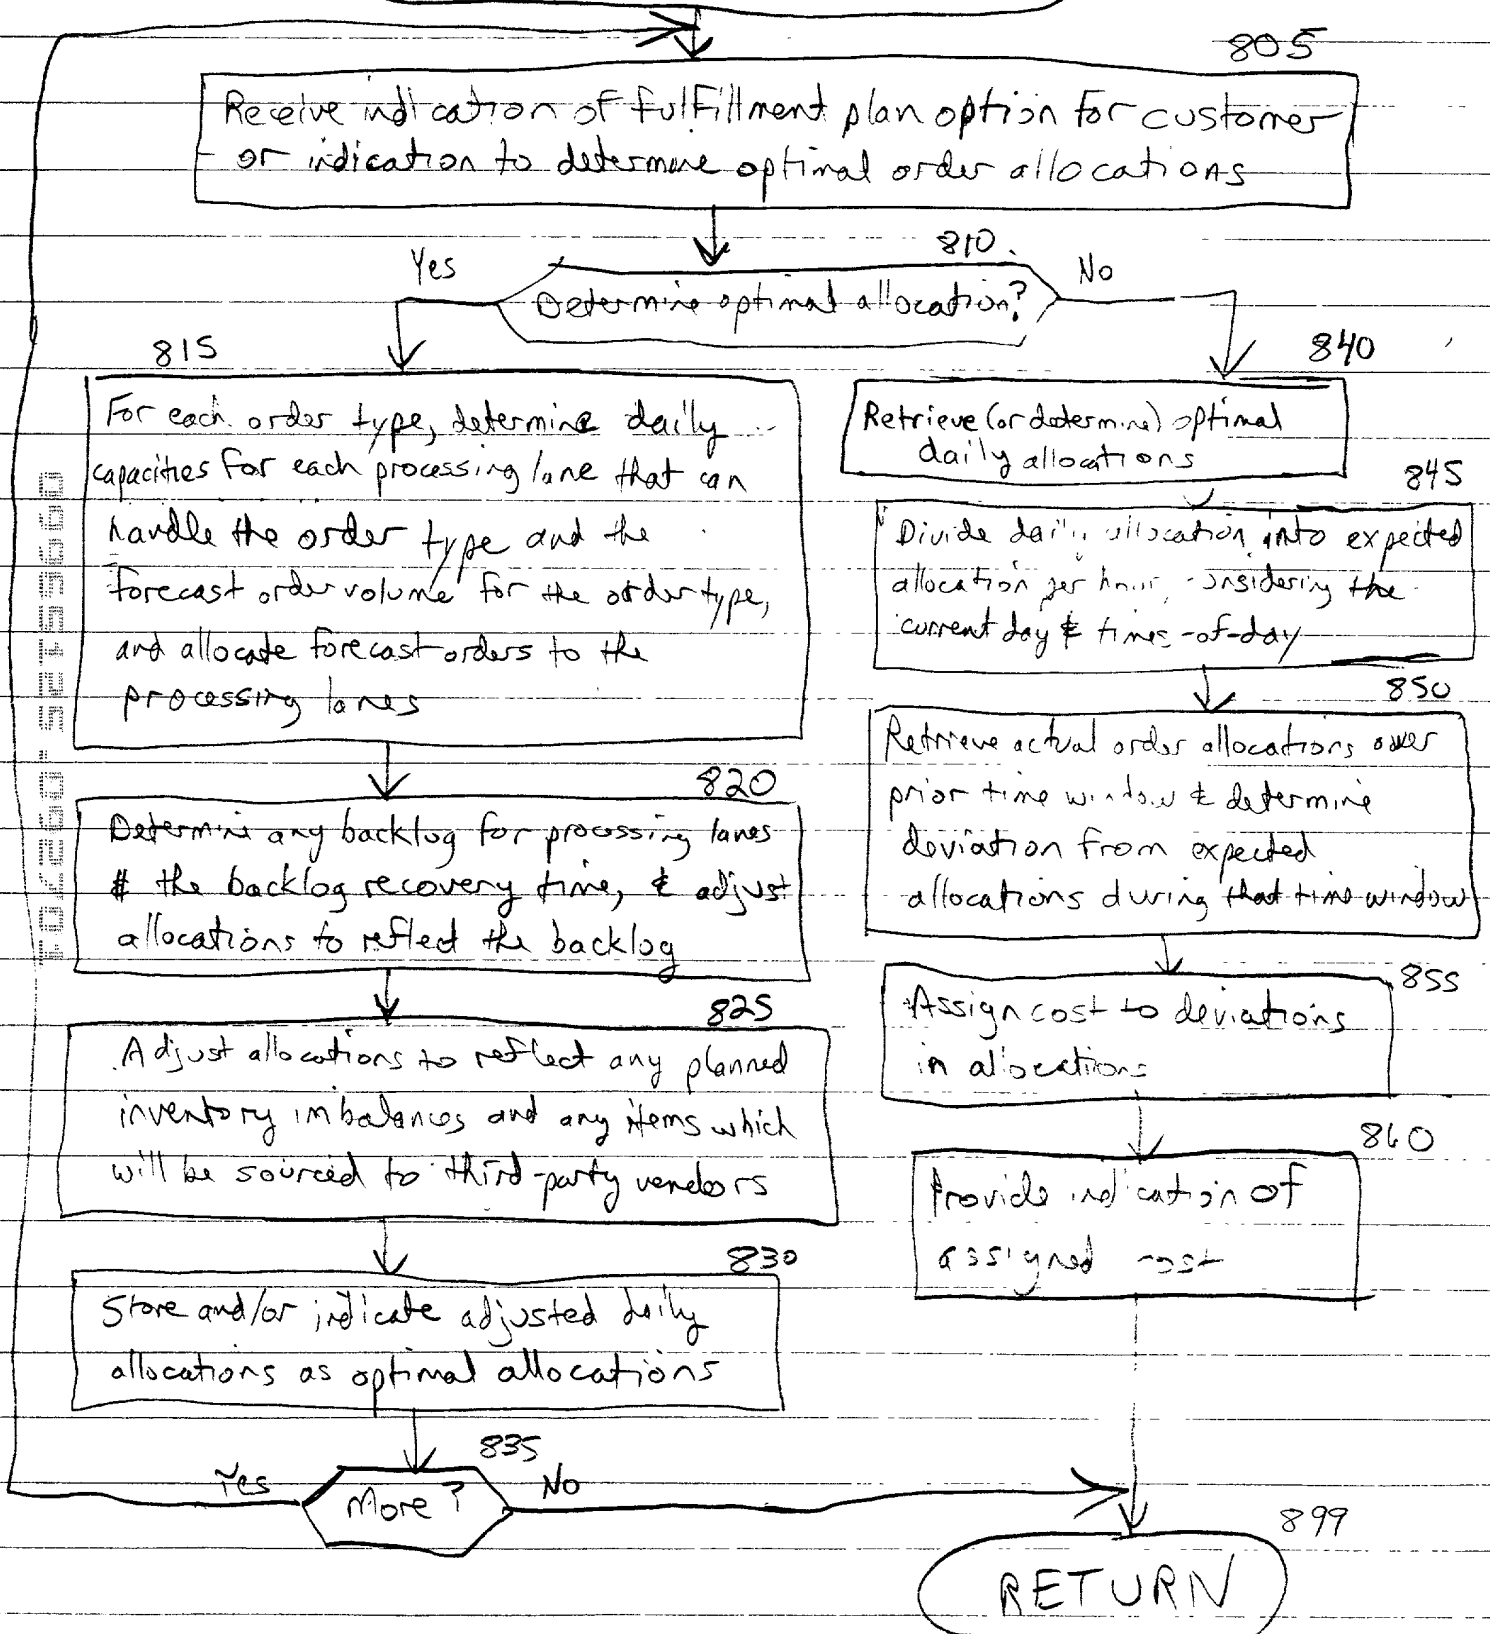 805
Receive indication of fulfillment plan option for customer
or indication to determine optimal order allocations
810.
Yes
No
Determine optimal allocation?
815
For each order type, determine daily
capacities for each processing lane that can
handle the order type and the
forecast order volume for the order type,
and allocate forecast orders to the
processing lanes
820
Determine any backlog for processing lanes
& the backlog recovery time, & adjust
allocations to reflect the backlog
825
Adjust allocations to reflect any planned
inventory imbalances and any items which
will be sourced to third-party vendors
830
Store and/or indicate adjusted daily
allocations as optimal allocations
835
Yes
More?
No
840
Retrieve (or determine) optimal
daily allocations
845
Divide daily allocation into expected
allocation per hour, considering the
current day & times-of-day
850
Retrieve actual order allocations over
prior time window & determine
deviation from expected
allocations during that time window
855
Assign cost to deviations
in allocations
860
Provide indication of
assigned cost
899
RETURN